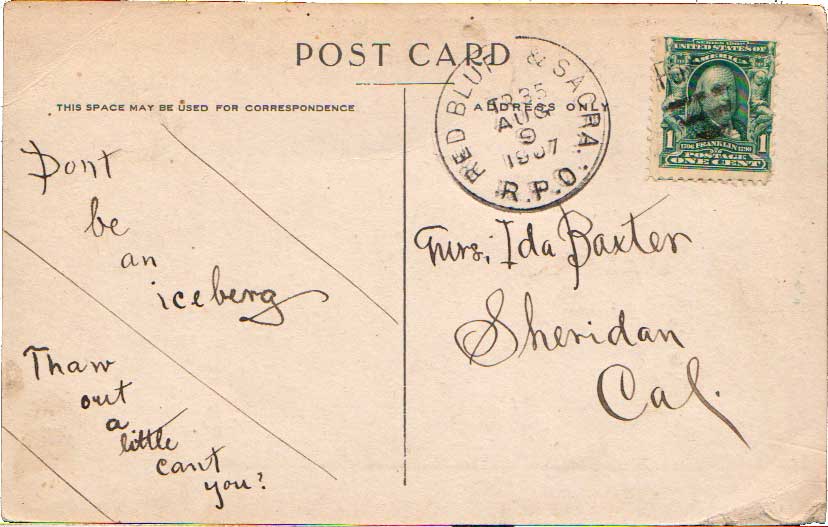 POST CARD
THIS SPACE MAY BE USED FOR CORRESPONDENCE
ADDRESS ONLY
RED BLUFF & SACRA.
AUG
9
1907
R.P.O.
UNITED STATES OF
AMERICA
1 1
1706 FRANKLIN 1790
POSTAGE
ONE CENT
Dont
be
an
iceberg
Thaw
out
a
little
cant
you?
Mrs. Ida Baxter
Sheridan
Cal.